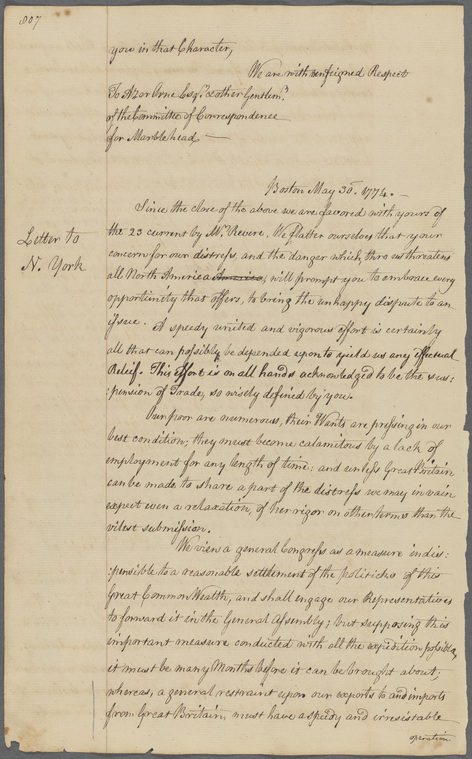 807
you in that Character,
We are with unfeigned Respect
To Azor Orne Esqr. & other Gentlemn.
of the Committee of Correspondence
for Marblehead —
Boston May 30. 1774. —
Since the close of the above we are favored with yours of
Letter to
N. York
the 23 current by Mr. Revere. We flatter ourselves that your
concern for our distress, and the danger which thro us threatens
all North America, will prompt you to embrace every
opportunity that offers, to bring the unhappy dispute to an
issue. A speedy united and vigorous effort is certainly
all that can possibly be depended upon to yield us any effectual
Releif. This effort is on all hands acknowledged to be the sus:
:pension of Trade, so wisely defined by you.
Our poor are numerous, their Wants are pressing in our
best condition; they must become calamitous by a lack of
employment for any length of time: and unless Great Britain
can be made to share a part of the distress we may in vain
expect even a relaxation, of her rigor on other terms than the
vilest submission.
We view a general Congress as a measure indis:
:pensible to a reasonable settlement of the policies of this
Great Common Wealth, and shall engage our Representatives
to forward it in the General Assembly; but supposing this
important measure conducted with all the expedition possible,
it must be many Months before it can be brought about;
whereas, a general restraint upon our exports to and imports
from Great Britain, must have a speedy and irresistable
operation